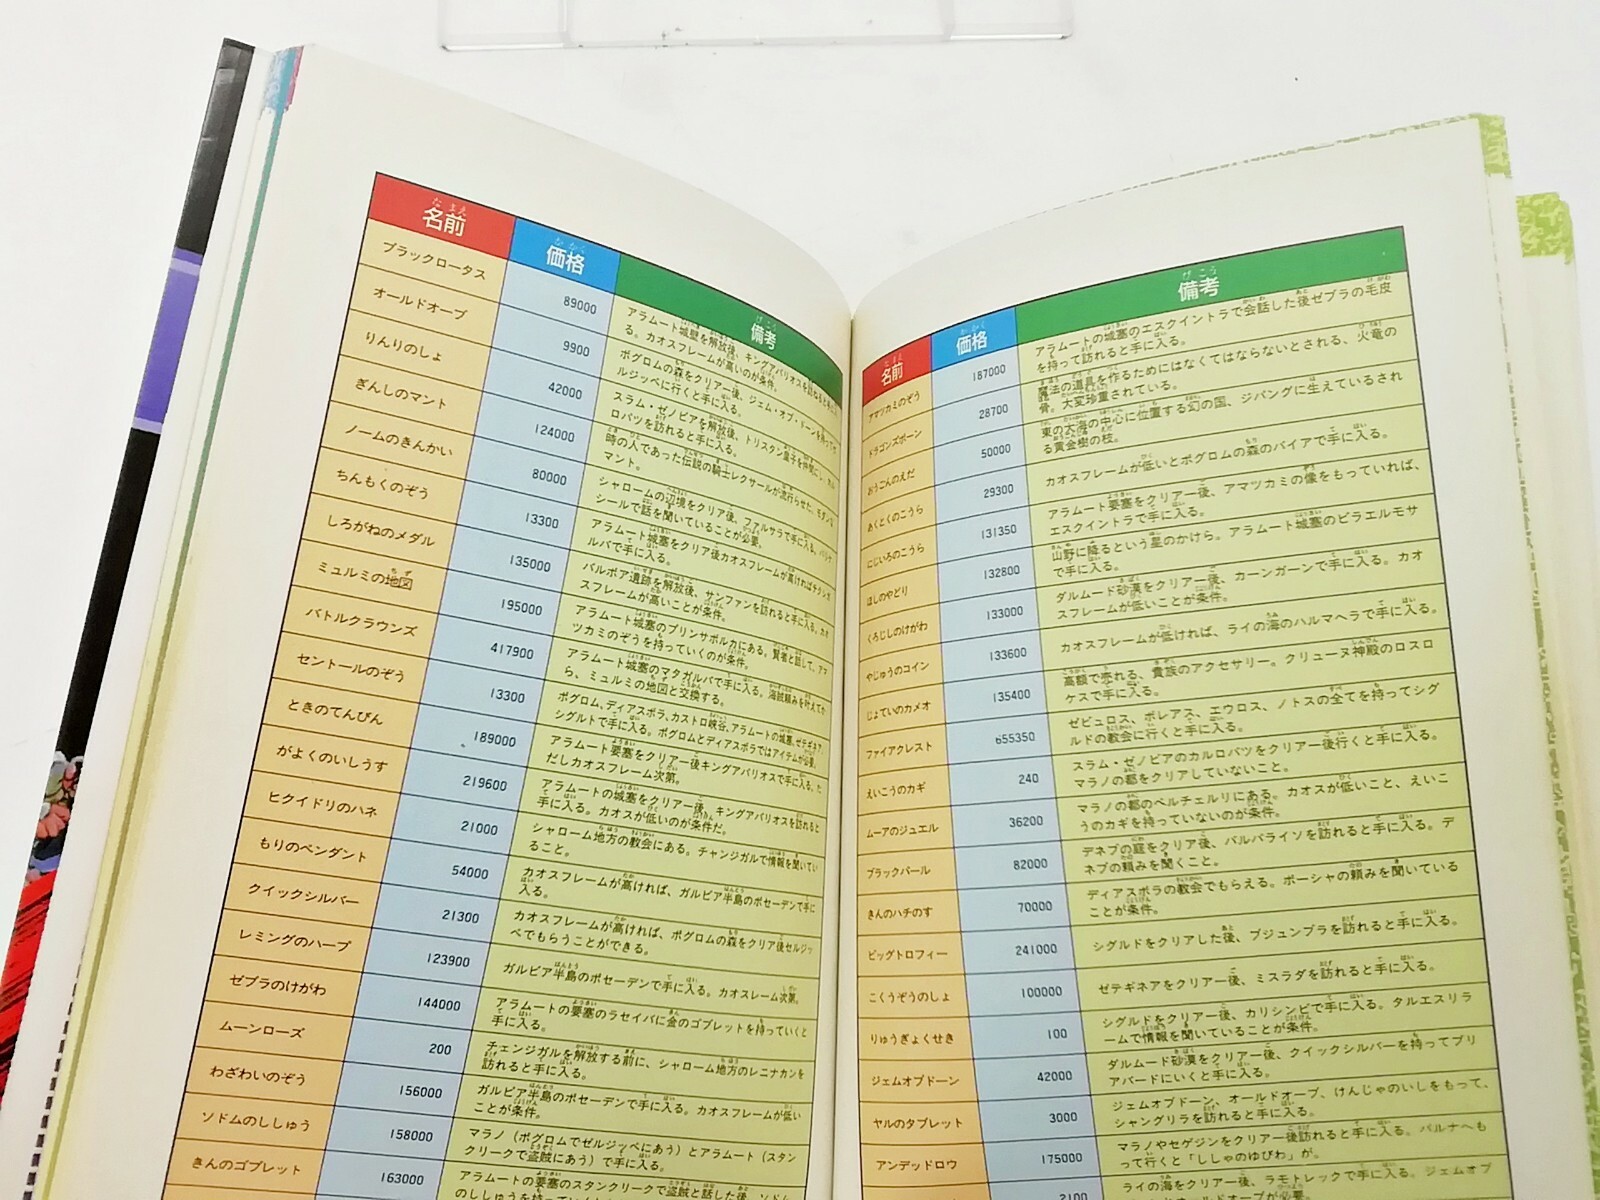 名前 価格 備考
ブラックロータス 89000 アラムート城壁を解放後、キングアバリオスを訪ねると手に入る。カオスフレームが高いのが条件。
オールドオーブ 9900 ポグロムの森をクリアー後、ジェム・オブ・ドーンを持ってゼルジッペに行くと手に入る。
りんりのしょ 42000 スラム・ゼノビアを解放後、トリスタン皇子を仲間にし、カルロバツを訪れると手に入る。
ぎんしのマント 124000 時の人であった伝説の騎士レクサールが流行らせた、モダンなマント。
ノームのきんかい 80000 シャロームの辺境をクリア後、ファルサラで手に入る。バレナシールで話を聞いていることが必要。
ちんもくのぞう 13300 アラムート城塞をクリア後カオスフレームが高ければチクシュルバで手に入る。
しろがねのメダル 135000 バルボア遺跡を解放後、サンファンを訪れると手に入る。カオスフレームが高いことが条件。
ミュルミの地図 195000 アラムート城塞のプリンサポルカにある。賢者と話して、アマツカミのぞうを持っていくのが条件。
バトルクラウンズ 417900 アラムート城塞のマタガルバで手に入る。海賊頼みを叶えてから、ミュルミの地図と交換する。
セントールのぞう 13300 ポグロム、ディアスポラ、カストロ峡谷、アラムートの城塞、ゼテギネア、シグルトで手に入る。ポグロムとディアスポラではアイテムが必要。
ときのてんびん 189000 アラムート要塞をクリアー後キングアバリオスで手に入る。ただしカオスフレーム次第。
がよくのいしうす 219600 アラムートの城塞をクリアー後、キングアバリオスを訪れると手に入る。カオスが低いのが条件だ。
ヒクイドリのハネ 21000 シャローム地方の教会にある。チャンジガルで情報を聞いていること。
もりのペンダント 54000 カオスフレームが高ければ、ガルビア半島のポセーデンで手に入る。
クイックシルバー 21300 カオスフレームが高ければ、ポグロムの森をクリア後セルジッペでもらうことができる。
レミングのハープ 123900 ガルビア半島のポセーデンで手に入る。カオスレーム次第。
ゼブラのけがわ 144000 アラムートの要塞のラセイバに金のゴブレットを持っていくと手に入る。
ムーンローズ 200 チェンジガルを解放する前に、シャローム地方のレニナカンを訪れると手に入る。
わざわいのぞう 156000 ガルビア半島のポセーデンで手に入る。カオスフレームが低いことが条件。
ソドムのししゅう 158000 マラノ（ポグロムでゼルジッペにあう）とアラムート（スタンクリークで盗賊にあう）で手に入る。
きんのゴブレット 163000 アラムートの要塞のスタンクリークで盗賊と話した後、ソドム
のししゅうを持っていくと
名前 価格 備考
アマツカミのぞう 187000 アラムートの城塞のエスクイントラで会話した後ゼブラの毛皮を持って訪れると手に入る。
ドラゴンズボーン 28700 魔法の道具を作るためにはなくてはならないとされる、火竜の骨。大変珍重されている。
おうごんのえだ 50000 東の大海の中心に位置する幻の国、ジパングに生えているされる黄金樹の枝。
あくとくのこうら 29300 カオスフレームが低いとポグロムの森のバイアで手に入る。
にじいろのこうら 131350 アラムート要塞をクリアー後、アマツカミの像をもっていれば、エスクイントラで手に入る。
ほしのやどり 132800 山野に降るという星のかけら。アラムート城塞のピラエルモサで手に入る。
くろじしのけがわ 133000 ダルムード砂漠をクリアー後、カーンガーンで手に入る。カオスフレームが低いことが条件。
やじゅうのコイン 133600 カオスフレームが低ければ、ライの海のハルマヘラで手に入る。
じょていのカメオ 135400 高額で売れる、貴族のアクセサリー。クリューヌ神殿のロスロケスで手に入る。
ファイアクレスト 655350 ゼピュロス、ボレアス、エウロス、ノトスの全てを持ってシグルドの教会に行くと手に入る。
えいこうのカギ 240 スラム・ゼノビアのカルロバツをクリアー後行くと手に入る。マラノの都をクリアしていないこと。
ムーアのジュエル 36200 マラノの都のペルチェルリにある。カオスが低いこと、えいこうのカギを持っていないのが条件。
ブラックパール 82000 デネブの庭をクリア後、バルパライソを訪れると手に入る。デネブの頼みを聞くこと。
きんのハチのす 70000 ディアスポラの教会でもらえる。ポーシャの頼みを聞いていることが条件。
ビッグトロフィー 241000 シグルドをクリアした後、ブジュンブラを訪れると手に入る。
こくうぞうのしょ 100000 ゼテギネアをクリアー後、ミスラダを訪れると手に入る。
りゅうぎょくせき 100 シグルドをクリアー後、カリシンビで手に入る。タルエスリラームで情報を聞いていることが条件。
ジェムオブドーン 42000 ダルムード砂漠をクリアー後、クイックシルバーを持ってブリアバードにいくと手に入る。
ヤルのタブレット 3000 ジェムオブドーン、オールドオーブ、けんじゃのいしをもって、シャングリラを訪れると手に入る。
アンデッドロウ 175000 マラノやセゲジンをクリアー後訪れると手に入る。バルナへもって行くと「ししゃのゆびわ」が。
2100 ライの海をクリアー後、ラモトレックで手に入る。ジェムオブ